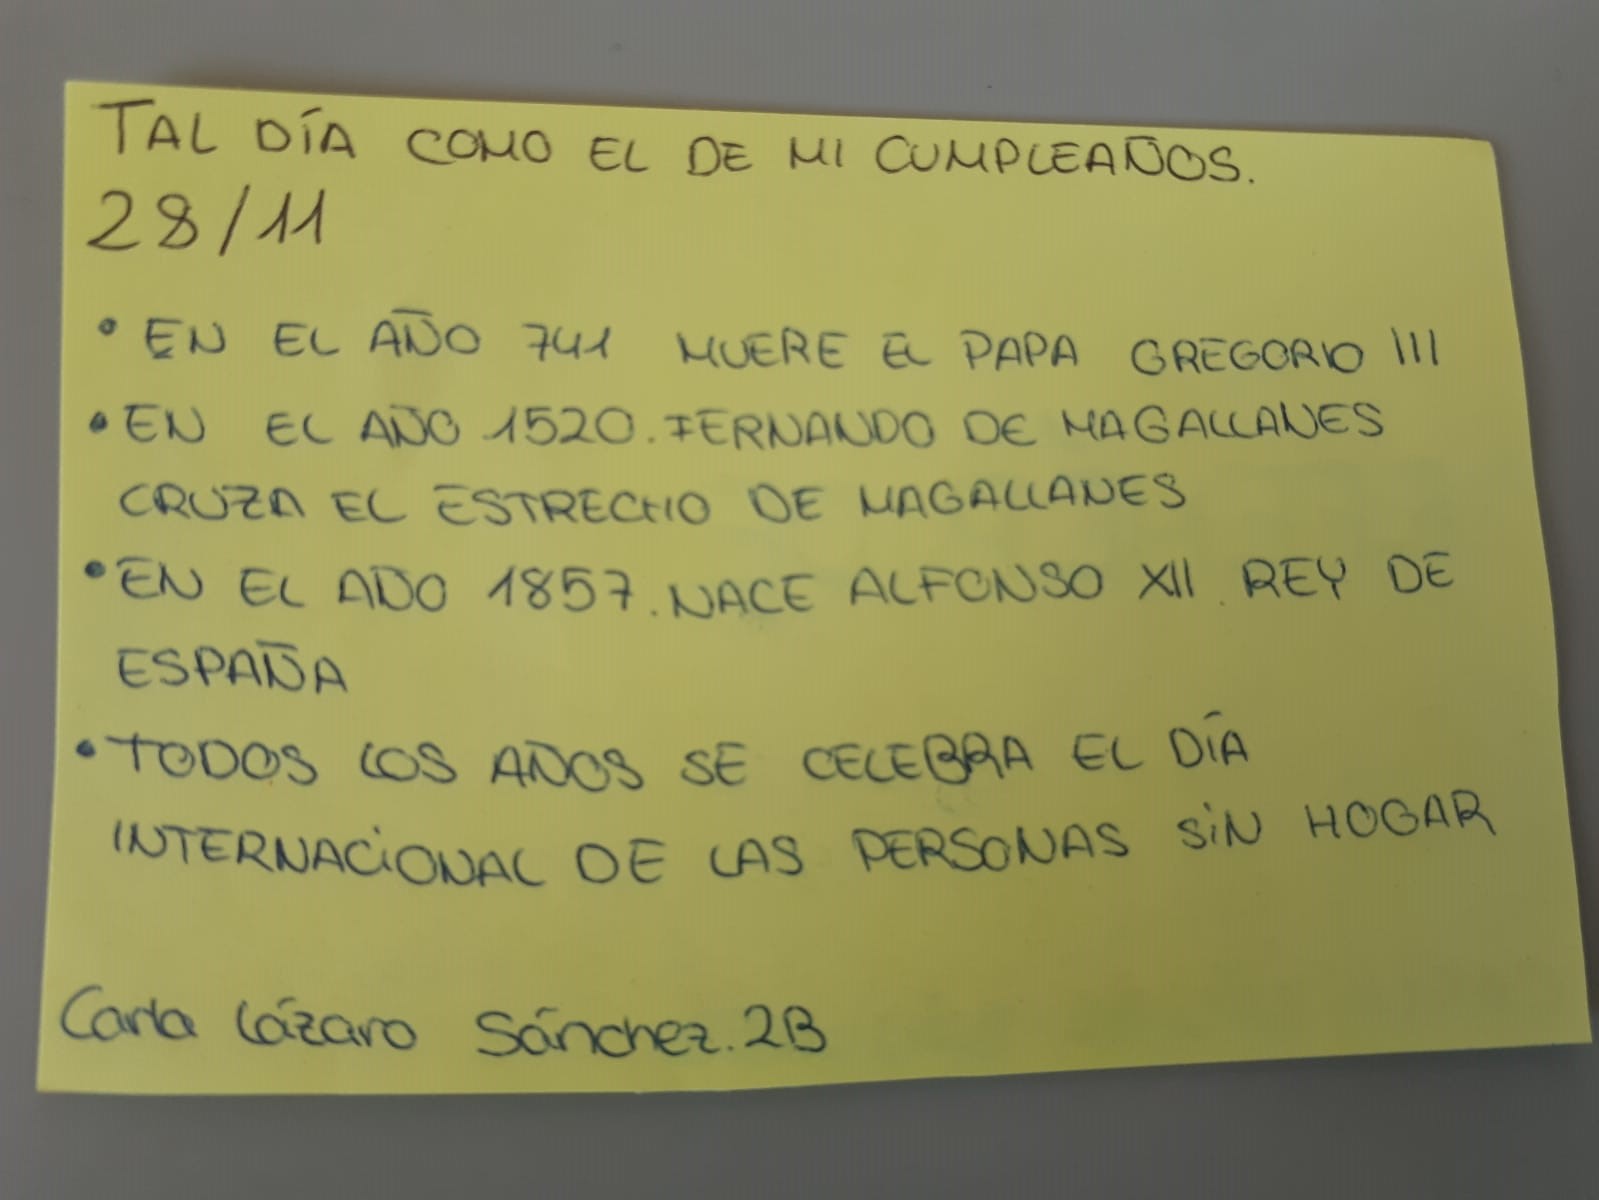 TAL DÍA COMO EL DE MI CUMPLEAÑOS.
28/11
• EN EL AÑO 741 MUERE EL PAPA GREGORIO III
• EN EL AÑO 1520. FERNANDO DE MAGALLANES
CRUZA EL ESTRECHO DE MAGALLANES
• EN EL AÑO 1857. NACE ALFONSO XII. REY DE
ESPAÑA
• TODOS LOS AÑOS SE CELEBRA EL DÍA
INTERNACIONAL DE LAS PERSONAS SIN HOGAR
Carla Lázaro Sánchez. 2B